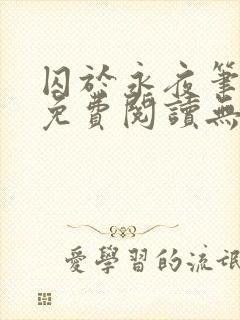 囚於永夜筆
免費閱讀無
愛學習的流氓